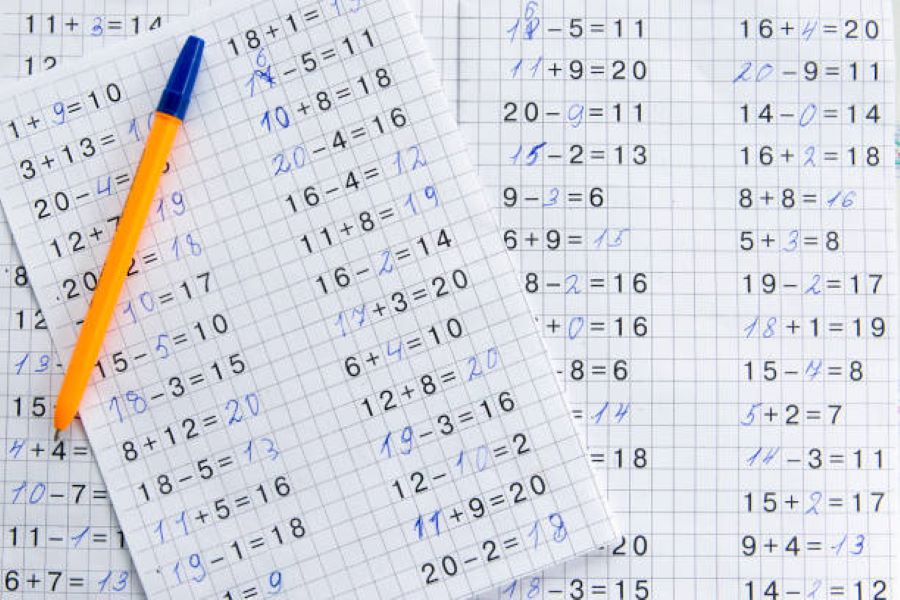 11+3=14
12
8
12
13-
15
4+4=
10-7=
11-1=1
6+7=13
1+9=10
3+13=1
20-4=
12+7 19
20 2=18
-10=17
15-5=10
18-3=15
8+12=20
18-5=13
11+5=16
19-1=18
1=9
18+1=
16-5=11
10+8=18
20-4=16
16-4=12
11+8=19
16-2=14
17+3=20
6+4=10
12+8=20
19-3=16
12-10=2
11+9=20
20-2=18
16-5=11
11+9=20
20-9=11
15-2=13
9-3=6
6+9=15
8-2=16
+0=16
-8=6
=14
=18
20
18-3=15
16+4=20
20-9=11
14-0=14
16+2=18
8+8=16
5+3=8
19-2=17
18+1=19
15-7=8
5+2=7
14-3=11
15+2=17
9+4=13
14-2=12